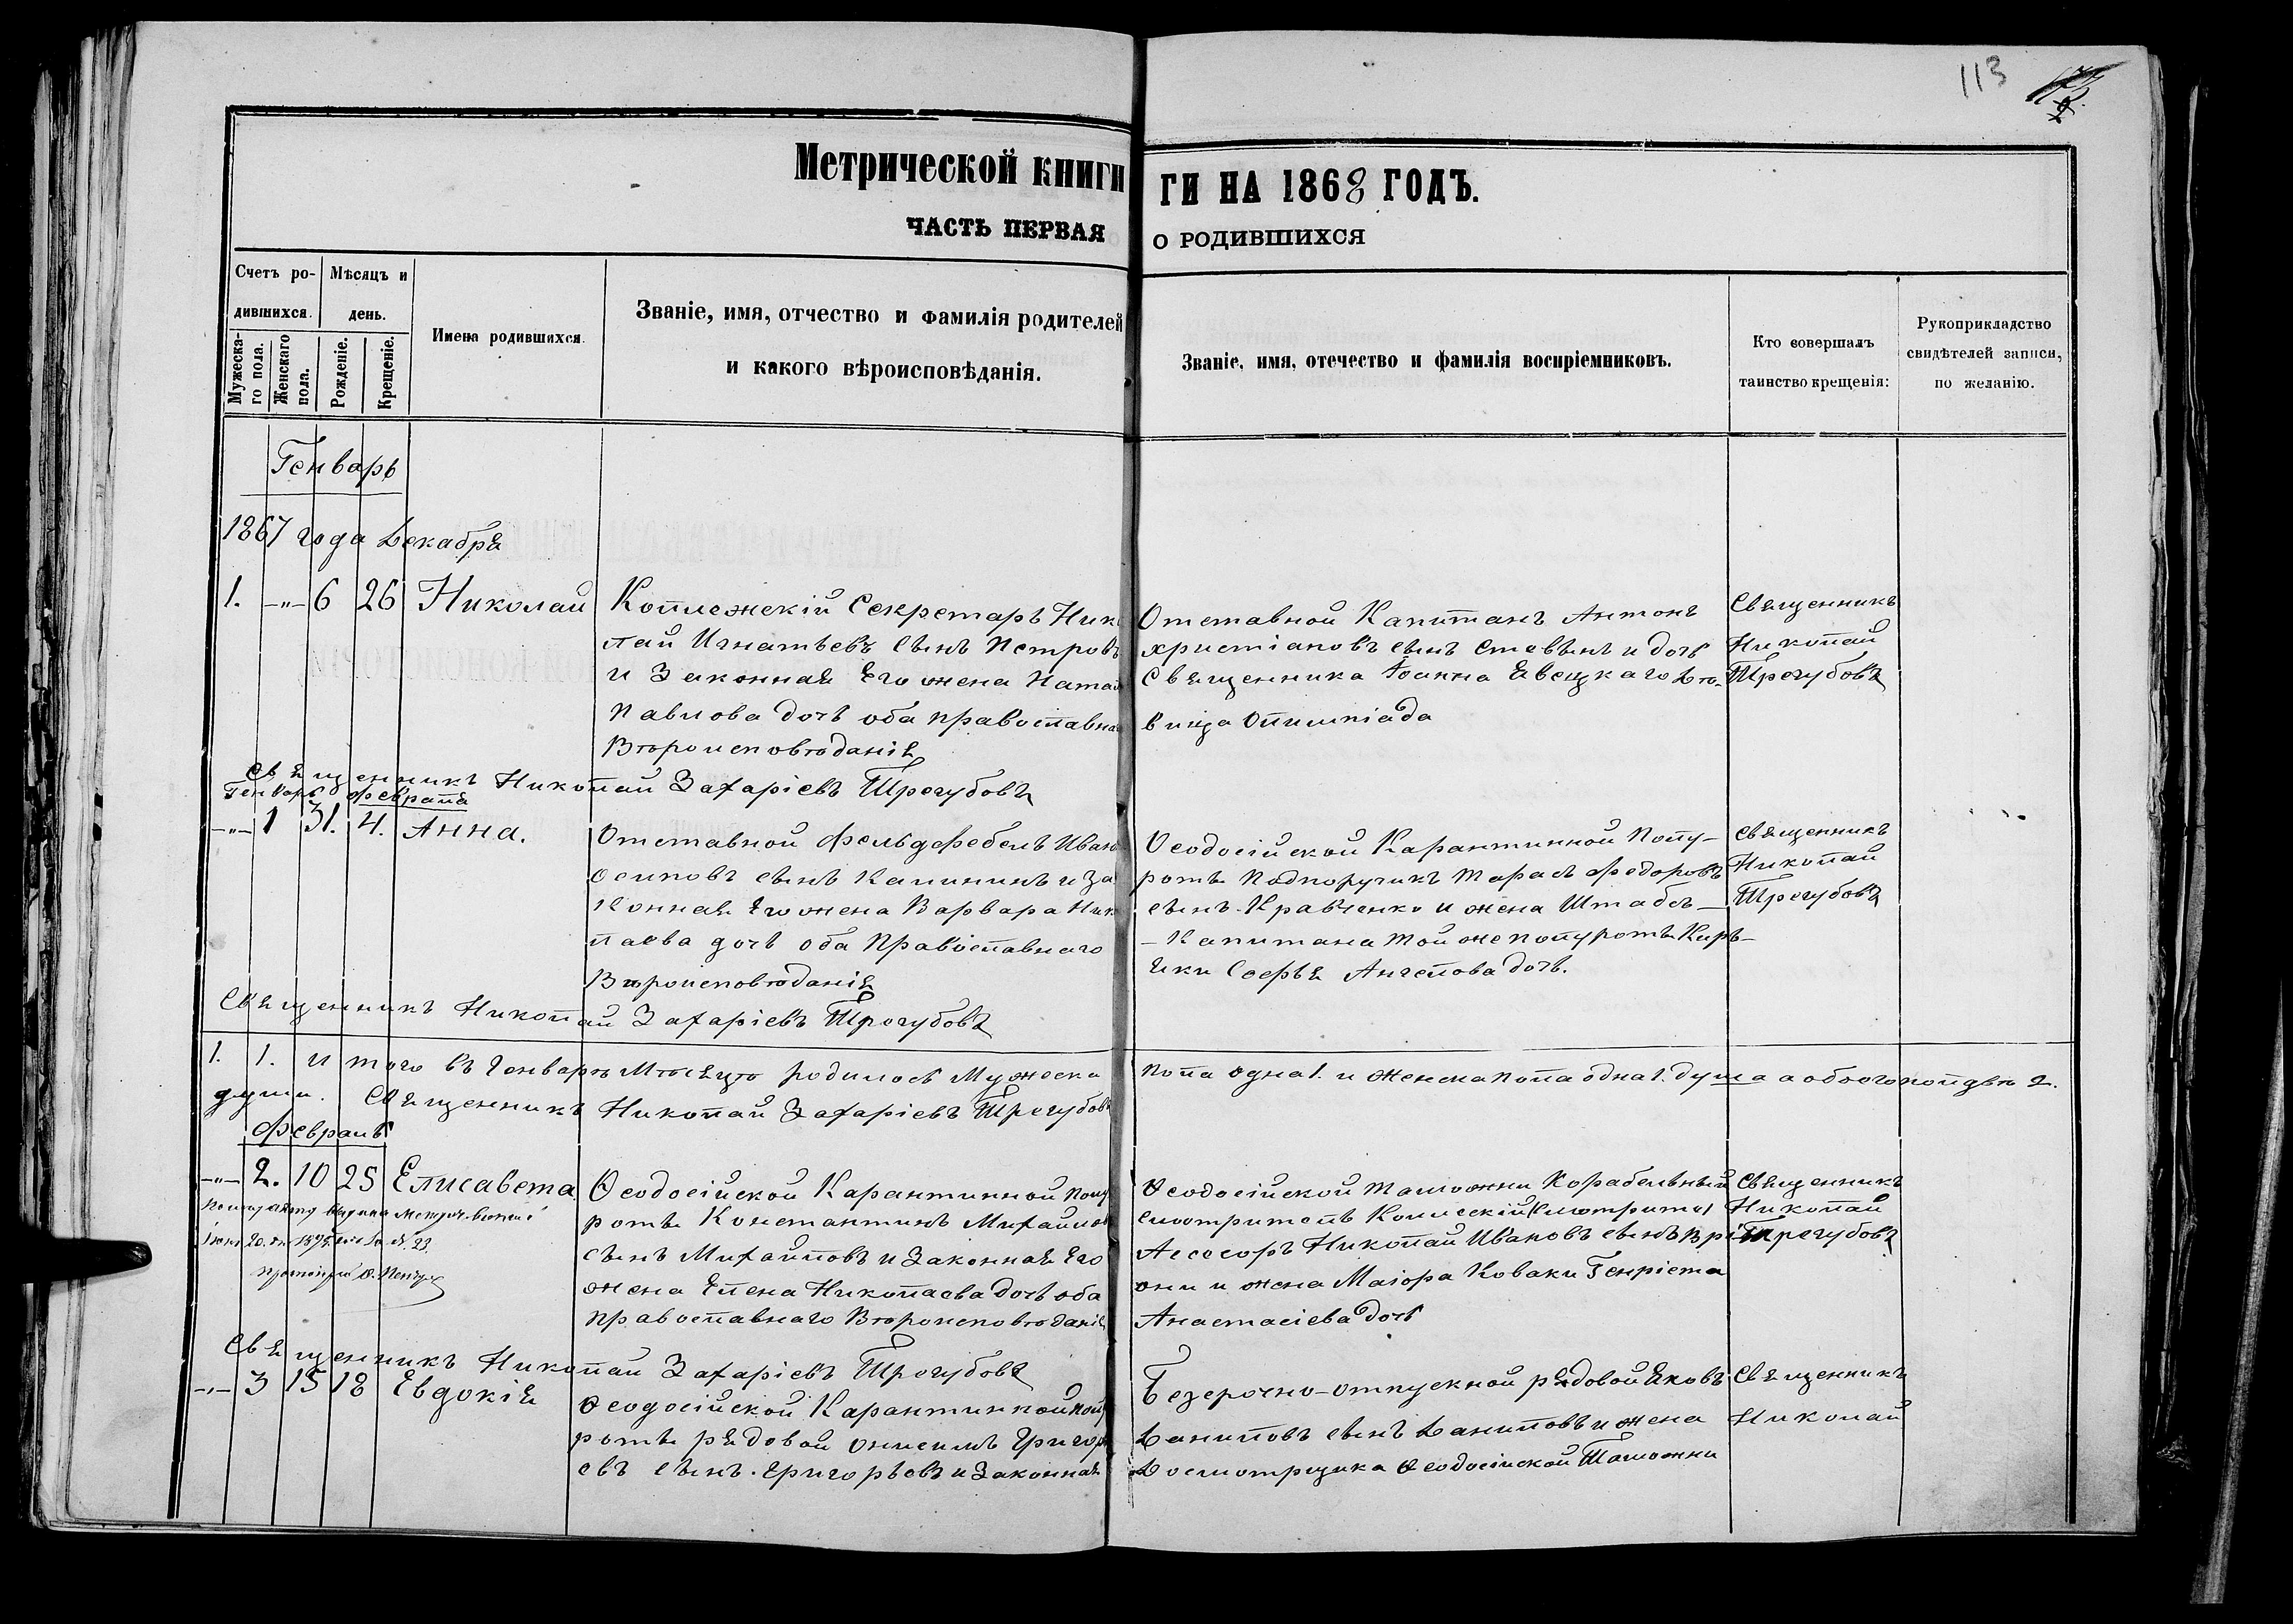 113
Метрической книги
ГИ НА 1868 ГОДЪ.
ЧАСТЬ ПЕРВАЯ
О РОДИВШИХСЯ
Счетъ ро-
дившихся.
Мѣсяцъ и
день.
Мужеска-
го пола.
Женскаго
пола.
Рожденіе.
Крещеніе.
Имена родившихся.
Званіе, имя, отчество и фамилія родителей
и какого вѣроисповѣданія.
Званіе, имя, отечество и фамилія воспріемниковъ.
Кто совершалъ
таинство крещенія:
Рукоприкладство
свидѣтелей записи,
по желанію.
Генварь
1867 года Декабря
1. -„- 6 26 Николай
Коллежскій Секретарь Нико
лай Игнатьевъ сынъ Петровъ
и Законная Его жена Натал
Павлова дочь оба православна
Вѣроисповѣданія
Отставной Капитанъ Антонъ
христіановъ сынъ Стевенъ и дочь
Священника Іоанна Явецкаго Дѣ-
вица Олимпіада
Священникъ
Николай
Трегубовъ
Священникъ Николай Захаріевъ Трегубовъ
Генварь Февраля
-„- 1 31. 4. Анна.
Отставной Фельдфебель Иванъ
Осиповъ сынъ Калининъ и За
конная Его жена Варвара Ник
лаева дочь оба Православнаго
Вѣроисповѣданія
Ѳеодосійской Карантинной Полу-
роты Подпоручикъ Тарасъ Федоровъ
сынъ Кравченко и жена Штабсъ-
-Капитана той же полуроты Кирь-
яки Софья Ангелова дочь.
Священникъ
Николай
Трегубовъ
Священникъ Николай Захаріевъ Трегубовъ
1. 1. и того въ Генварѣ Мѣсяцѣ родилось Мужеска
пола одна 1. и Женска пола одна 1. душа а обоего пола двѣ 2.
души. Священникъ Николай Захаріевъ Трегубовъ
Февраль
-„- 2. 10 25 Елисавета
Ѳеодосійской Карантинной полу
роты Константинъ Михайлов
сынъ Михайловъ и Законная Его
жена Елена Николаева дочь оба
православнаго Вѣроисповѣданія
Ѳеодосійской таможни Корабельный
смотритель Коллескій (смотрите)
Асесоръ Николай Ивановъ сынъ Врі
они и жена Маіора Коваки Генріета
Анастасіева дочь
Священникъ
Николай
Трегубовъ
Священникъ Николай Захаріевъ Трегубовъ
-„- 3 15 18 Евдокія
Ѳеодосійской Карантинной полу
роты рядовой Онисимъ Григорь
евъ сынъ Григорьевъ и Законная
Безсрочно-отпускной рядовой Яковъ
Даниловъ сынъ Даниловъ и жена
Досмотрщика Ѳеодосійской Таможни
Священникъ
Николай